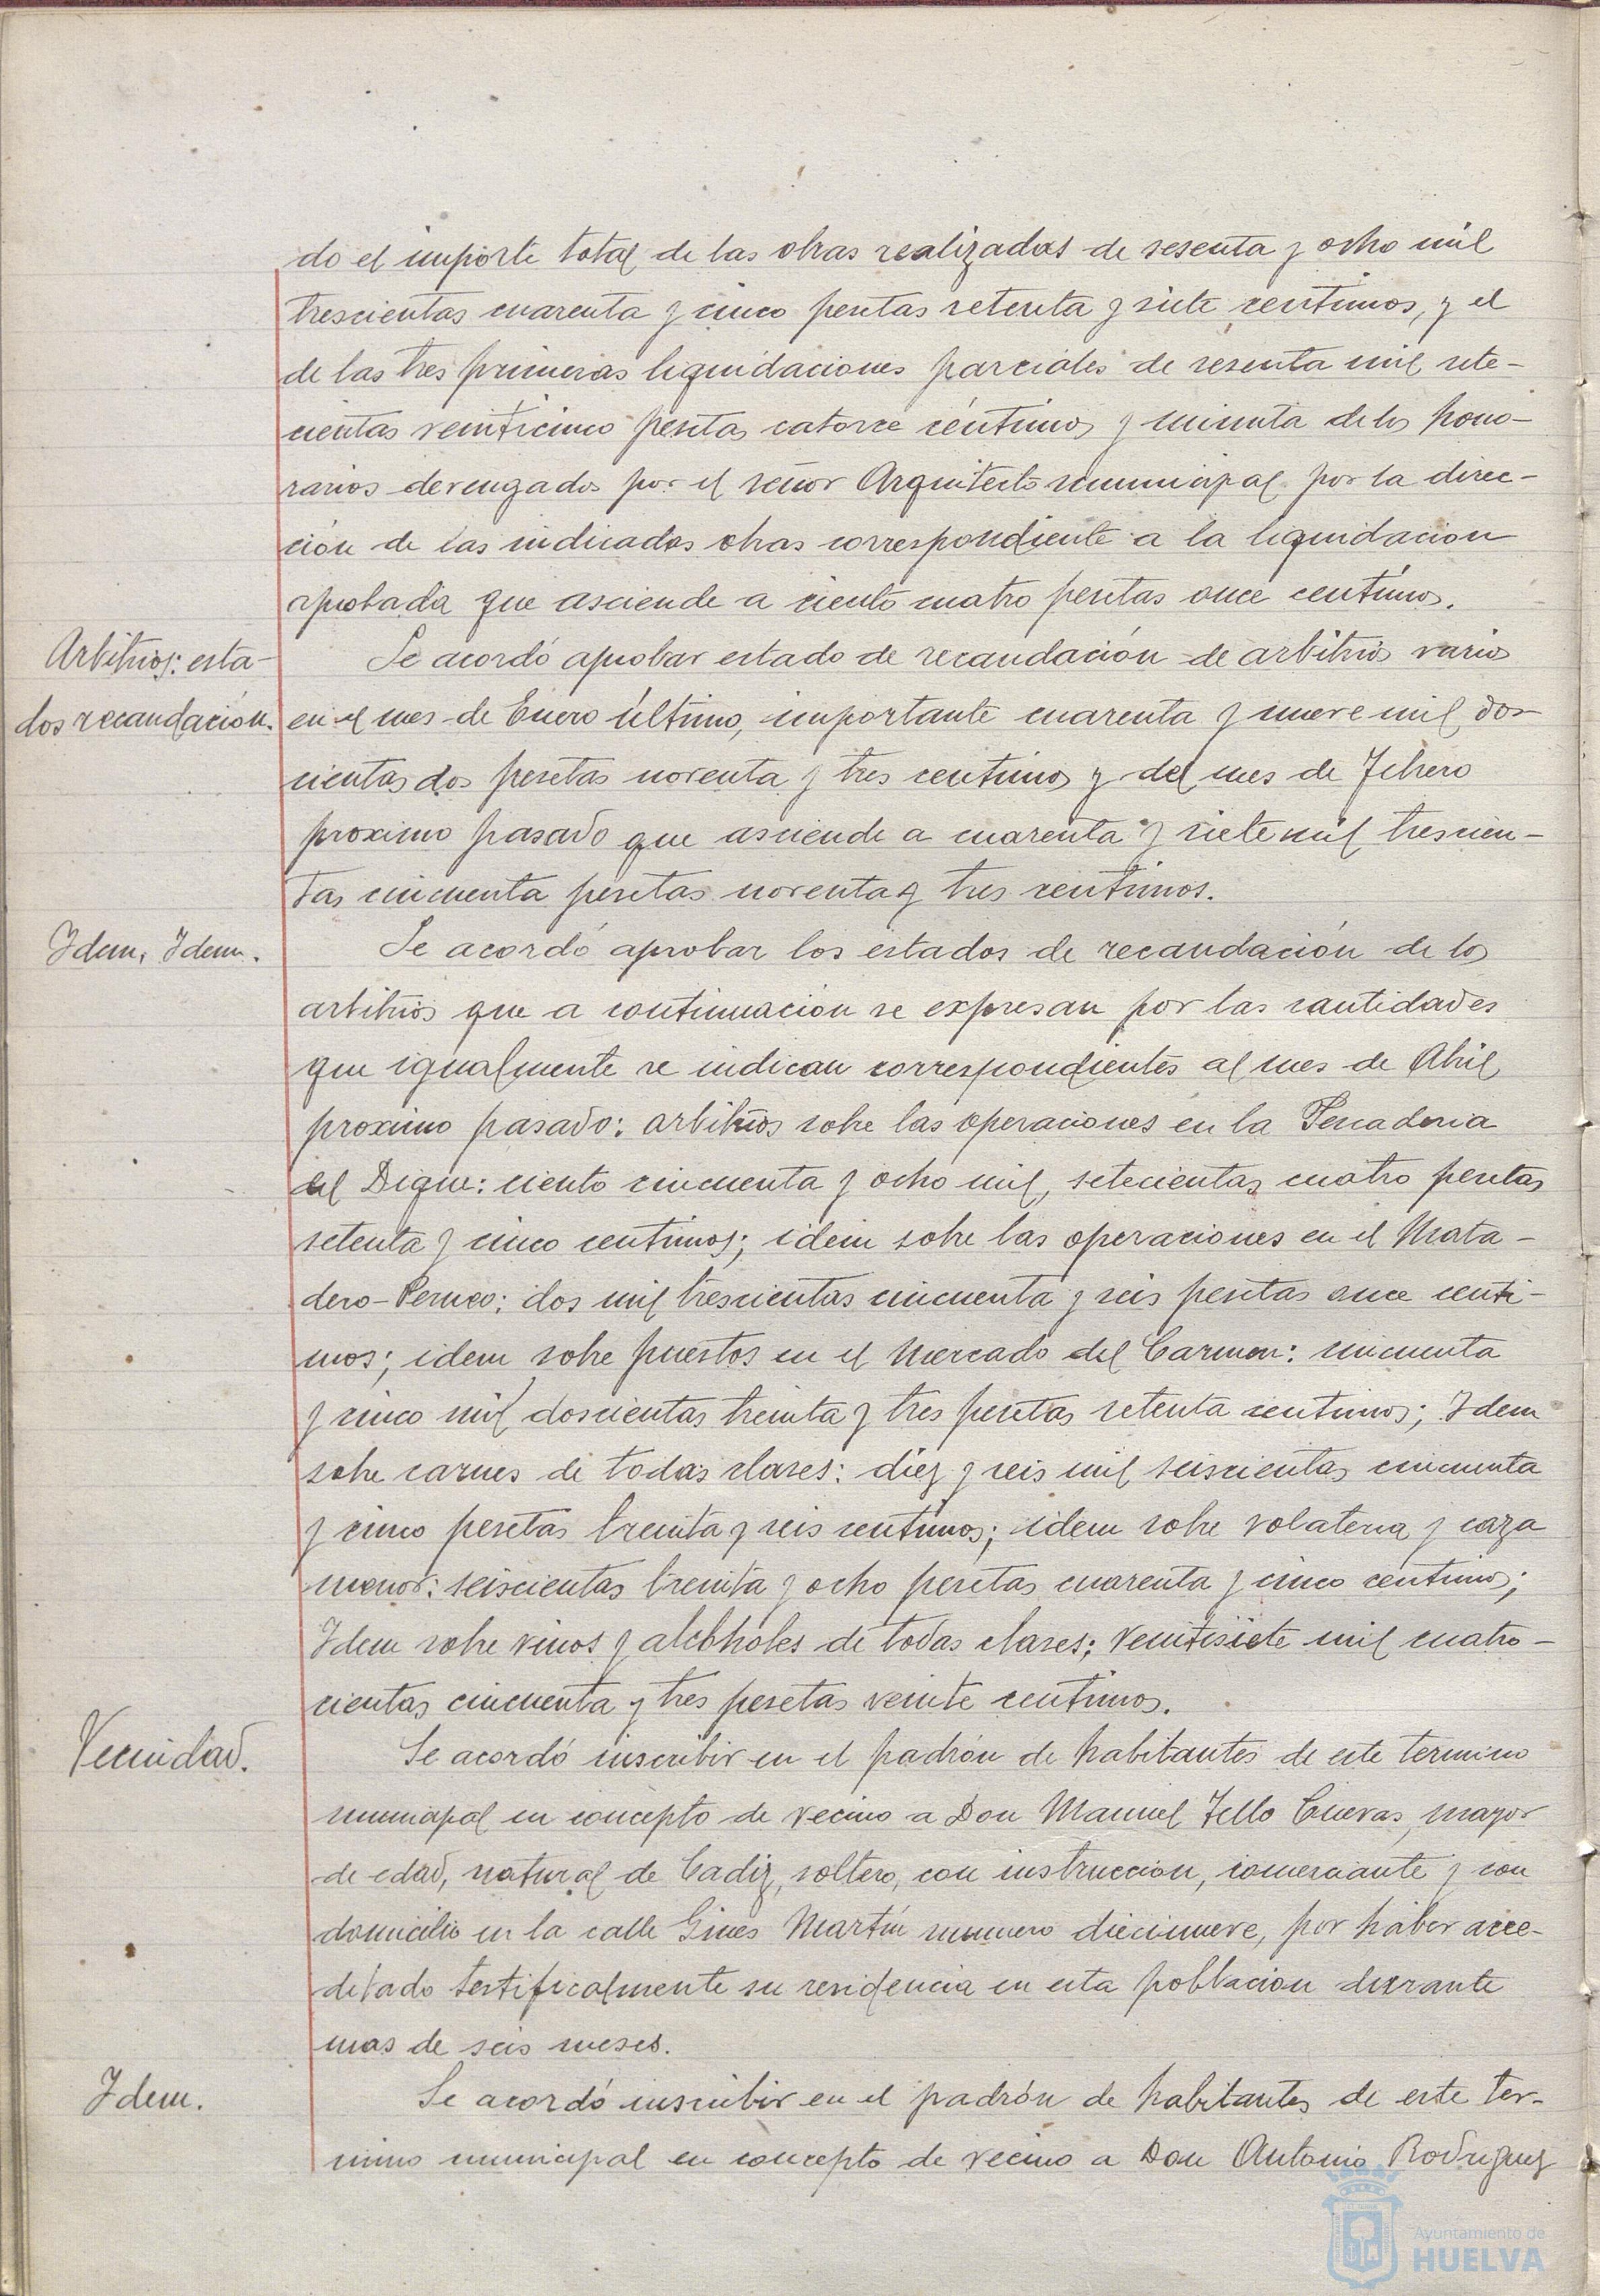 do el importe total de las obras realizadas de sesenta y ocho mil
trescientas cuarenta y cinco pesetas setenta y siete centimos, y el
de las tres primeras liquidaciones parciales de sesenta mil sete-
cientas veinticinco pesetas catorce céntimos y minuta de los hono-
rarios devengados por el señor Arquitecto municipal por la direc-
ción de las indicadas obras correspondiente a la liquidacion
aprobada que asciende a ciento cuatro pesetas once centimos.
Arbitrios: esta-
dos recaudación.
Se acordó aprobar estado de recaudación de arbitrios varios
en el mes de Enero último, importante cuarenta y nueve mil dos-
cientas dos pesetas noventa y tres centimos y del mes de Febrero
proximo pasado que asciende a cuarenta y siete mil trescien-
tas cincuenta pesetas noventa y tres centimos.
Idem, Idem.
Se acordó aprobar los estados de recaudación de los
arbitrios que a continuación se expresan por las cantidades
que igualmente se indican correspondientes al mes de Abril
proximo pasado: arbitrios sobre las operaciones en la Pescaderia
del Dique: ciento cincuenta y ocho mil, setecientas cuatro pesetas
setenta y cinco centimos; idem sobre las operaciones en el Mata-
dero- : dos mil trescientas cincuenta y seis pesetas once centi-
mos; idem sobre puestos en el Mercado del Carmen: cincuenta
y cinco mil doscientas treinta y tres pesetas setenta centimos; Idem
sobre carnes de todas clases: diez y seis mil seiscientas cincuenta
y cinco pesetas treinta y seis centimos; idem sobre volateria y caza
menor: seiscientas treinta y ocho pesetas cuarenta y cinco centimos;
Idem sobre vinos y alcoholes de todas clases; veintisiete mil cuatro-
cientas cincuenta y tres pesetas veinte centimos.
Vecindad.
Se acordó inscribir en el padrón de habitantes de este termino
municipal en concepto de vecino a Don Manuel Tello Cuevas, mayor
de edad, natural de Cadiz, soltero, con instruccion, comerciante y con
domicilio en la calle Gines Martín numero diecinueve, por haber acre-
ditado testificalmente su residencia en esta poblacion durante
mas de seis meses.
Idem.
Se acordó inscribir en el padrón de habitantes de este ter-
mino municipal en concepto de vecino a Don Antonio Rodriguez
Ayuntamiento de
HUELVA